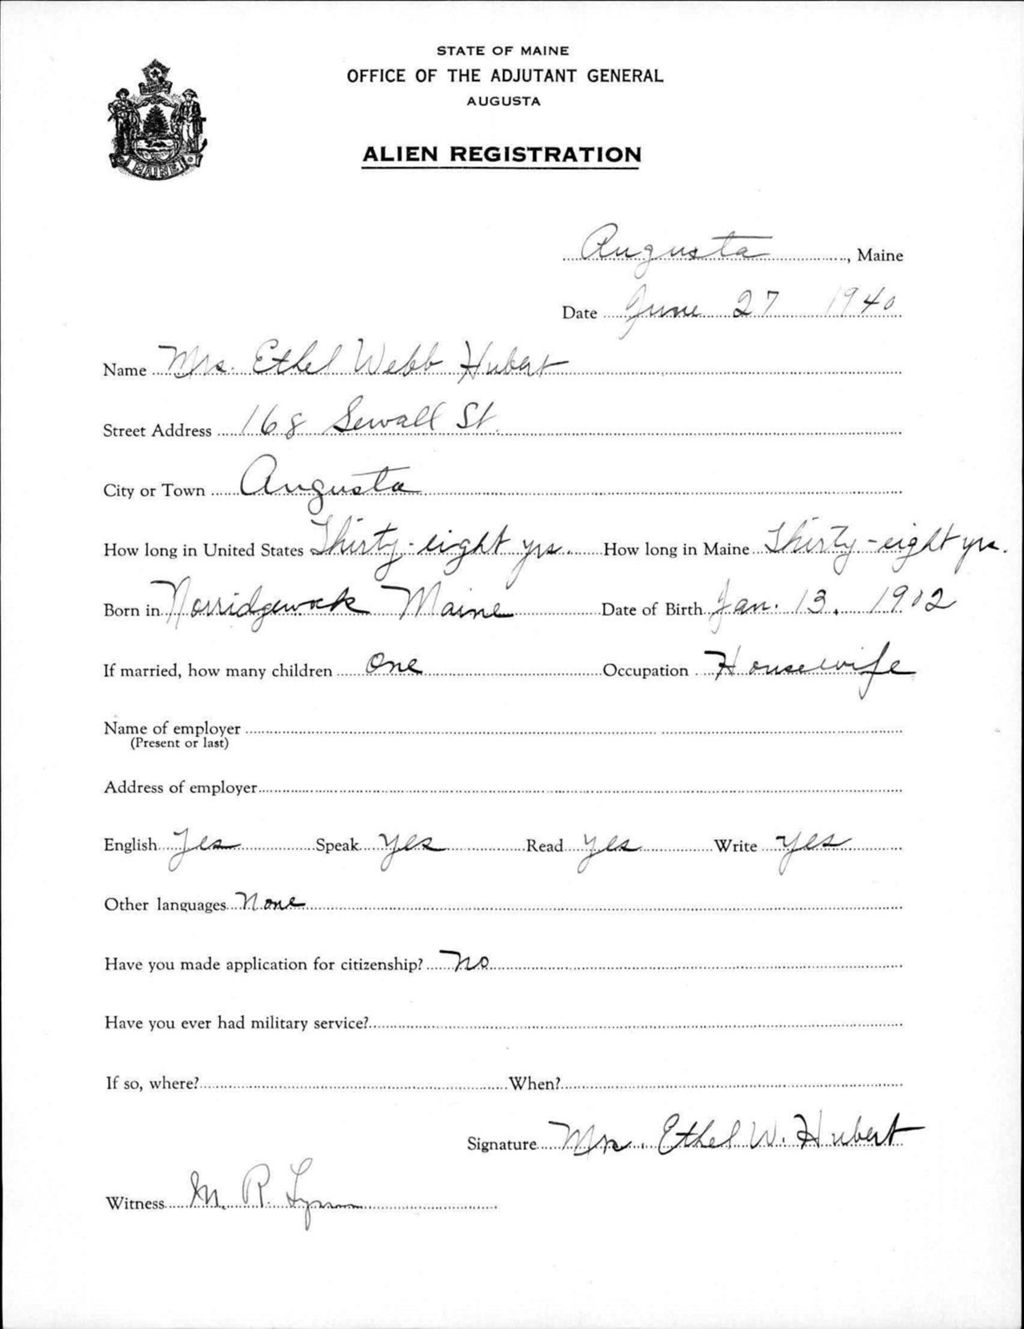 STATE OF MAINE
OFFICE OF THE ADJUTANT GENERAL
AUGUSTA
ALIEN REGISTRATION
MAINE
Augusta, Maine
Date June 27 1940
Name Mrs. Ethel Webb Hubert
Street Address 168 Sewall St.
City or Town Augusta
How long in United States Thirty-eight yrs. How long in Maine Thirty-eight yrs.
Born in Norridgewock Maine Date of Birth Jan. 13, 1902
If married, how many children One Occupation Housewife
Name of employer
(Present or last)
Address of employer
English Yes Speak Yes Read Yes Write Yes
Other languages None
Have you made application for citizenship? No
Have you ever had military service?
If so, where? When?
Signature Mrs. Ethel W. Hubert
Witness M. R. Lynn